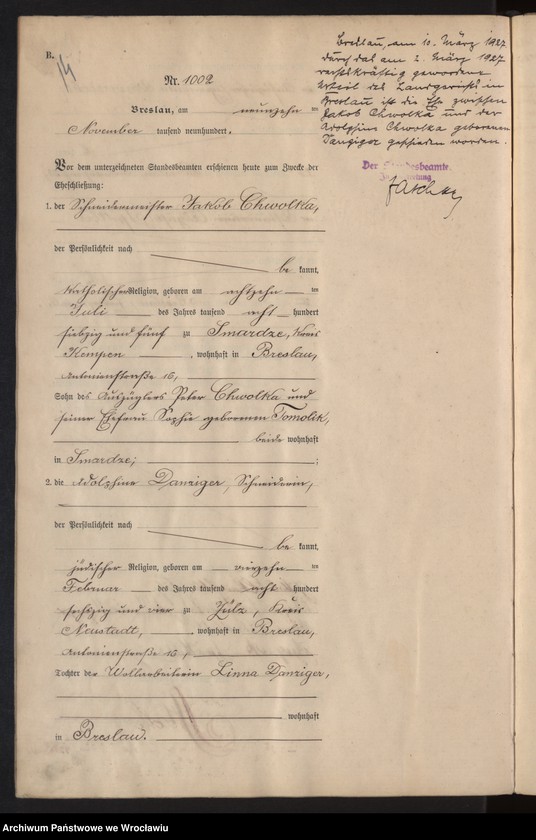 B.
14
Nr. 1002
Breslau, am neunzehn ten
November tausend neunhundert.
Vor dem unterzeichneten Standesbeamten erschienen heute zum Zwecke der
Eheschließung:
1. der Schneidermeister Jakob Chwolka,
der Persönlichkeit nach
be kannt,
katholischer Religion, geboren am achtzehn ten
Juli des Jahres tausend acht hundert
siebzig und fünf zu Smardze, Kreis
Kempen, wohnhaft in Breslau,
Antonienstraße 16,
Sohn des Auszüglers Peter Chwolka und
seiner Ehefrau Sophie geborenen Tomolik,
beide wohnhaft
in Smardze;
2. die Adolphine Danziger, Schneiderin,
der Persönlichkeit nach
be kannt,
jüdischer Religion, geboren am vierzehn ten
Februar des Jahres tausend acht hundert
sechszig und vier zu Zülz, Kreis
Neustadt, wohnhaft in Breslau,
Antonienstraße 16,
Tochter der Wollarbeiterin Linna Danziger,
wohnhaft
in Breslau.
Breslau, am 10. März 1927.
Durch das am 2. März 1927
rechtskräftig gewordene
Urteil des Landgerichts in
Breslau ist die Ehe zwischen
Jakob Chwolka und der
Adolphine Chwolka geborenen
Danziger geschieden worden.
Der Standesbeamte.
In Vertretung
Archiwum Państwowe we Wrocławiu